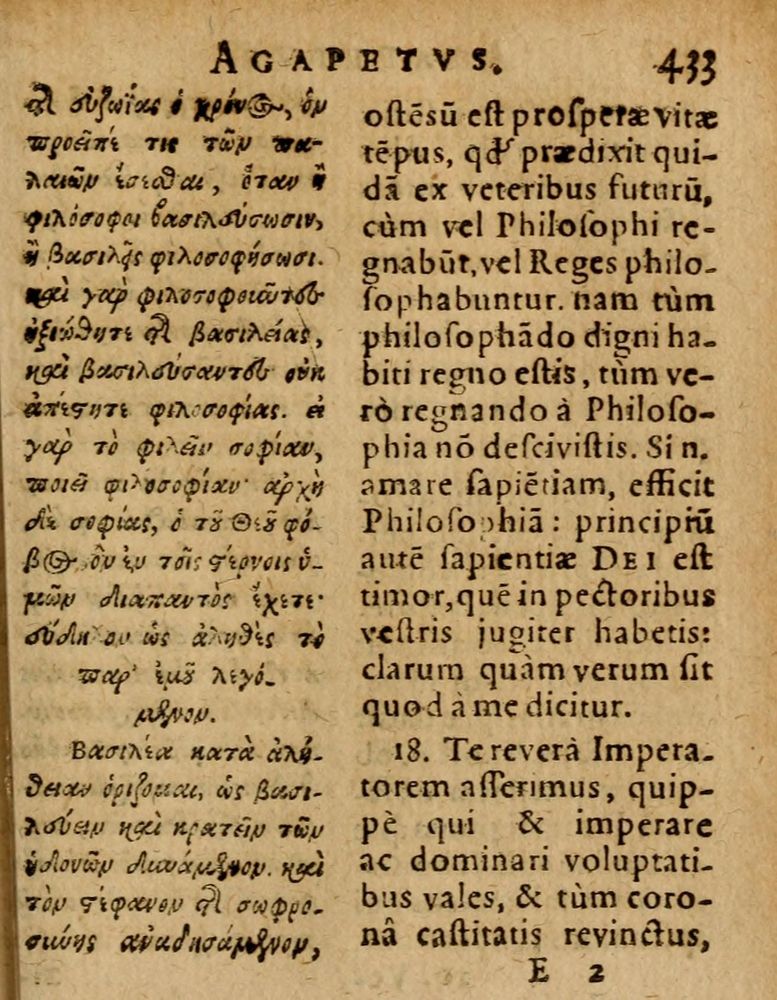 AGAPETVS. 433
τῆς εὐζωΐας ὁ χρόνος, ὃν
προεῖπέ τις τῶν πα-
λαιῶν ἔσεσθαι, ὅταν ἢ
φιλόσοφοι βασιλεύσωσιν,
ἢ βασιλεῖς φιλοσοφήσωσι.
καὶ γὰρ φιλοσοφοῦντες
ἠξιώθητε τῆς βασιλείας,
καὶ βασιλεύσαντες οὐκ
ἀπέστητε φιλοσοφίας. εἰ
γὰρ τὸ φιλεῖν σοφίαν,
ποιεῖ φιλοσοφίαν· ἀρχὴ
δὲ σοφίας, ὁ τοῦ Θεοῦ φό-
βος· ὃν ἐν τοῖς στέρνοις ὑ-
μῶν διαπαντὸς ἔχετε·
εὔδηλον ὡς ἀληθὲς τὸ
παρ' ἐμοῦ λεγό-
μενον.
Βασιλέα κατὰ ἀλή-
θειαν ὁρίζομαι, ὡς βασι-
λεύειν καὶ κρατεῖν τῶν
ἡδονῶν δυνάμενον. καὶ
τὸν στέφανον τῆς σωφρο-
σύνης ἀναδησάμενον,
ostẽsũ est prosperæ vitæ
tẽpus, qd' prædixit qui-
dã ex veteribus futurũ,
cùm vel Philosophi re-
gnabũt, vel Reges philo-
sophabuntur. nam tùm
philosophãdo digni ha-
biti regno estis, tùm ve-
rò regnando à Philoso-
phia nõ descivistis. Si n.
amare sapiẽtiam, efficit
Philosophiã: principiũ
autẽ sapientiæ DEI est
timor, quẽ in pectoribus
vestris jugiter habetis:
clarum quàm verum sit
quod à me dicitur.
18. Te reverà Impera-
torem asserimus, quip-
pè qui & imperare
ac dominari voluptati-
bus vales, & tùm coro-
nâ castitatis revinctus,
E 2